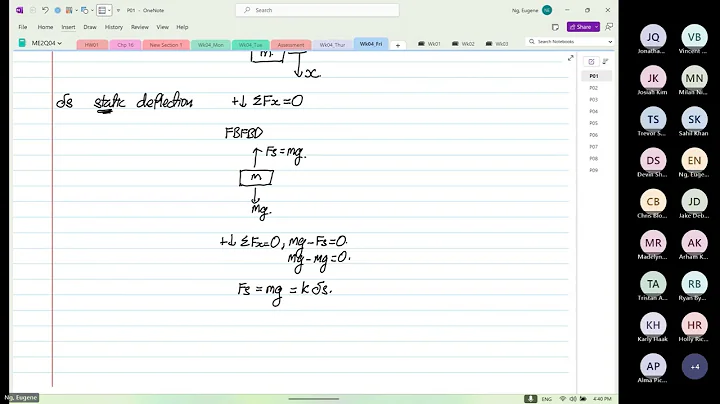 P01 - OneNote
Search
Ng, Eugene
File Home Insert Draw History Review View Help
Share
ME2Q04
HW01 Chp 16 New Section 1 Wk04_Mon Wk04_Tue Assessment Wk04_Thur Wk04_Fri + Wk01 Wk02 Wk03
Search Notebooks
m
x
δs static deflection +↓ ΣFx=0
FBD
Fs = mg.
m
mg.
+↓ ΣFx=0, mg-Fs=0.
mg-mg=0.
Fs = mg = kδs.
P01
P02
P03
P04
P05
P06
P07
P08
P09
JQ VB
Jonatha... Vincent ...
JK MN
Josiah Kim Milan Ni...
TS SK
Trevor S... Sahil Khan
DS EN
Devin Sh... Ng, Euge...
CB JD
Chris Blo... Jake Deb...
MR AK
Madelyn... Arham K...
TA RB
Tristan A... Ryan By...
KH HR
Karly Haak Holly Ric...
AP +4
Alma Pic...
Ng, Eugene
ENG 4:40 PM